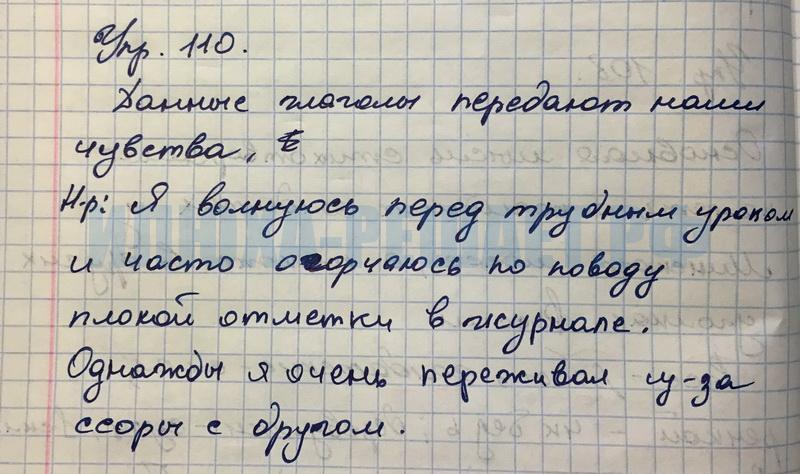 Упр. 110.
Данные глаголы передают наши
чувства.
Н-р: Я волнуюсь перед трудным уроком
и часто огорчаюсь по поводу
плохой отметки в журнале.
Однажды я очень переживал из-за
ссоры с другом.